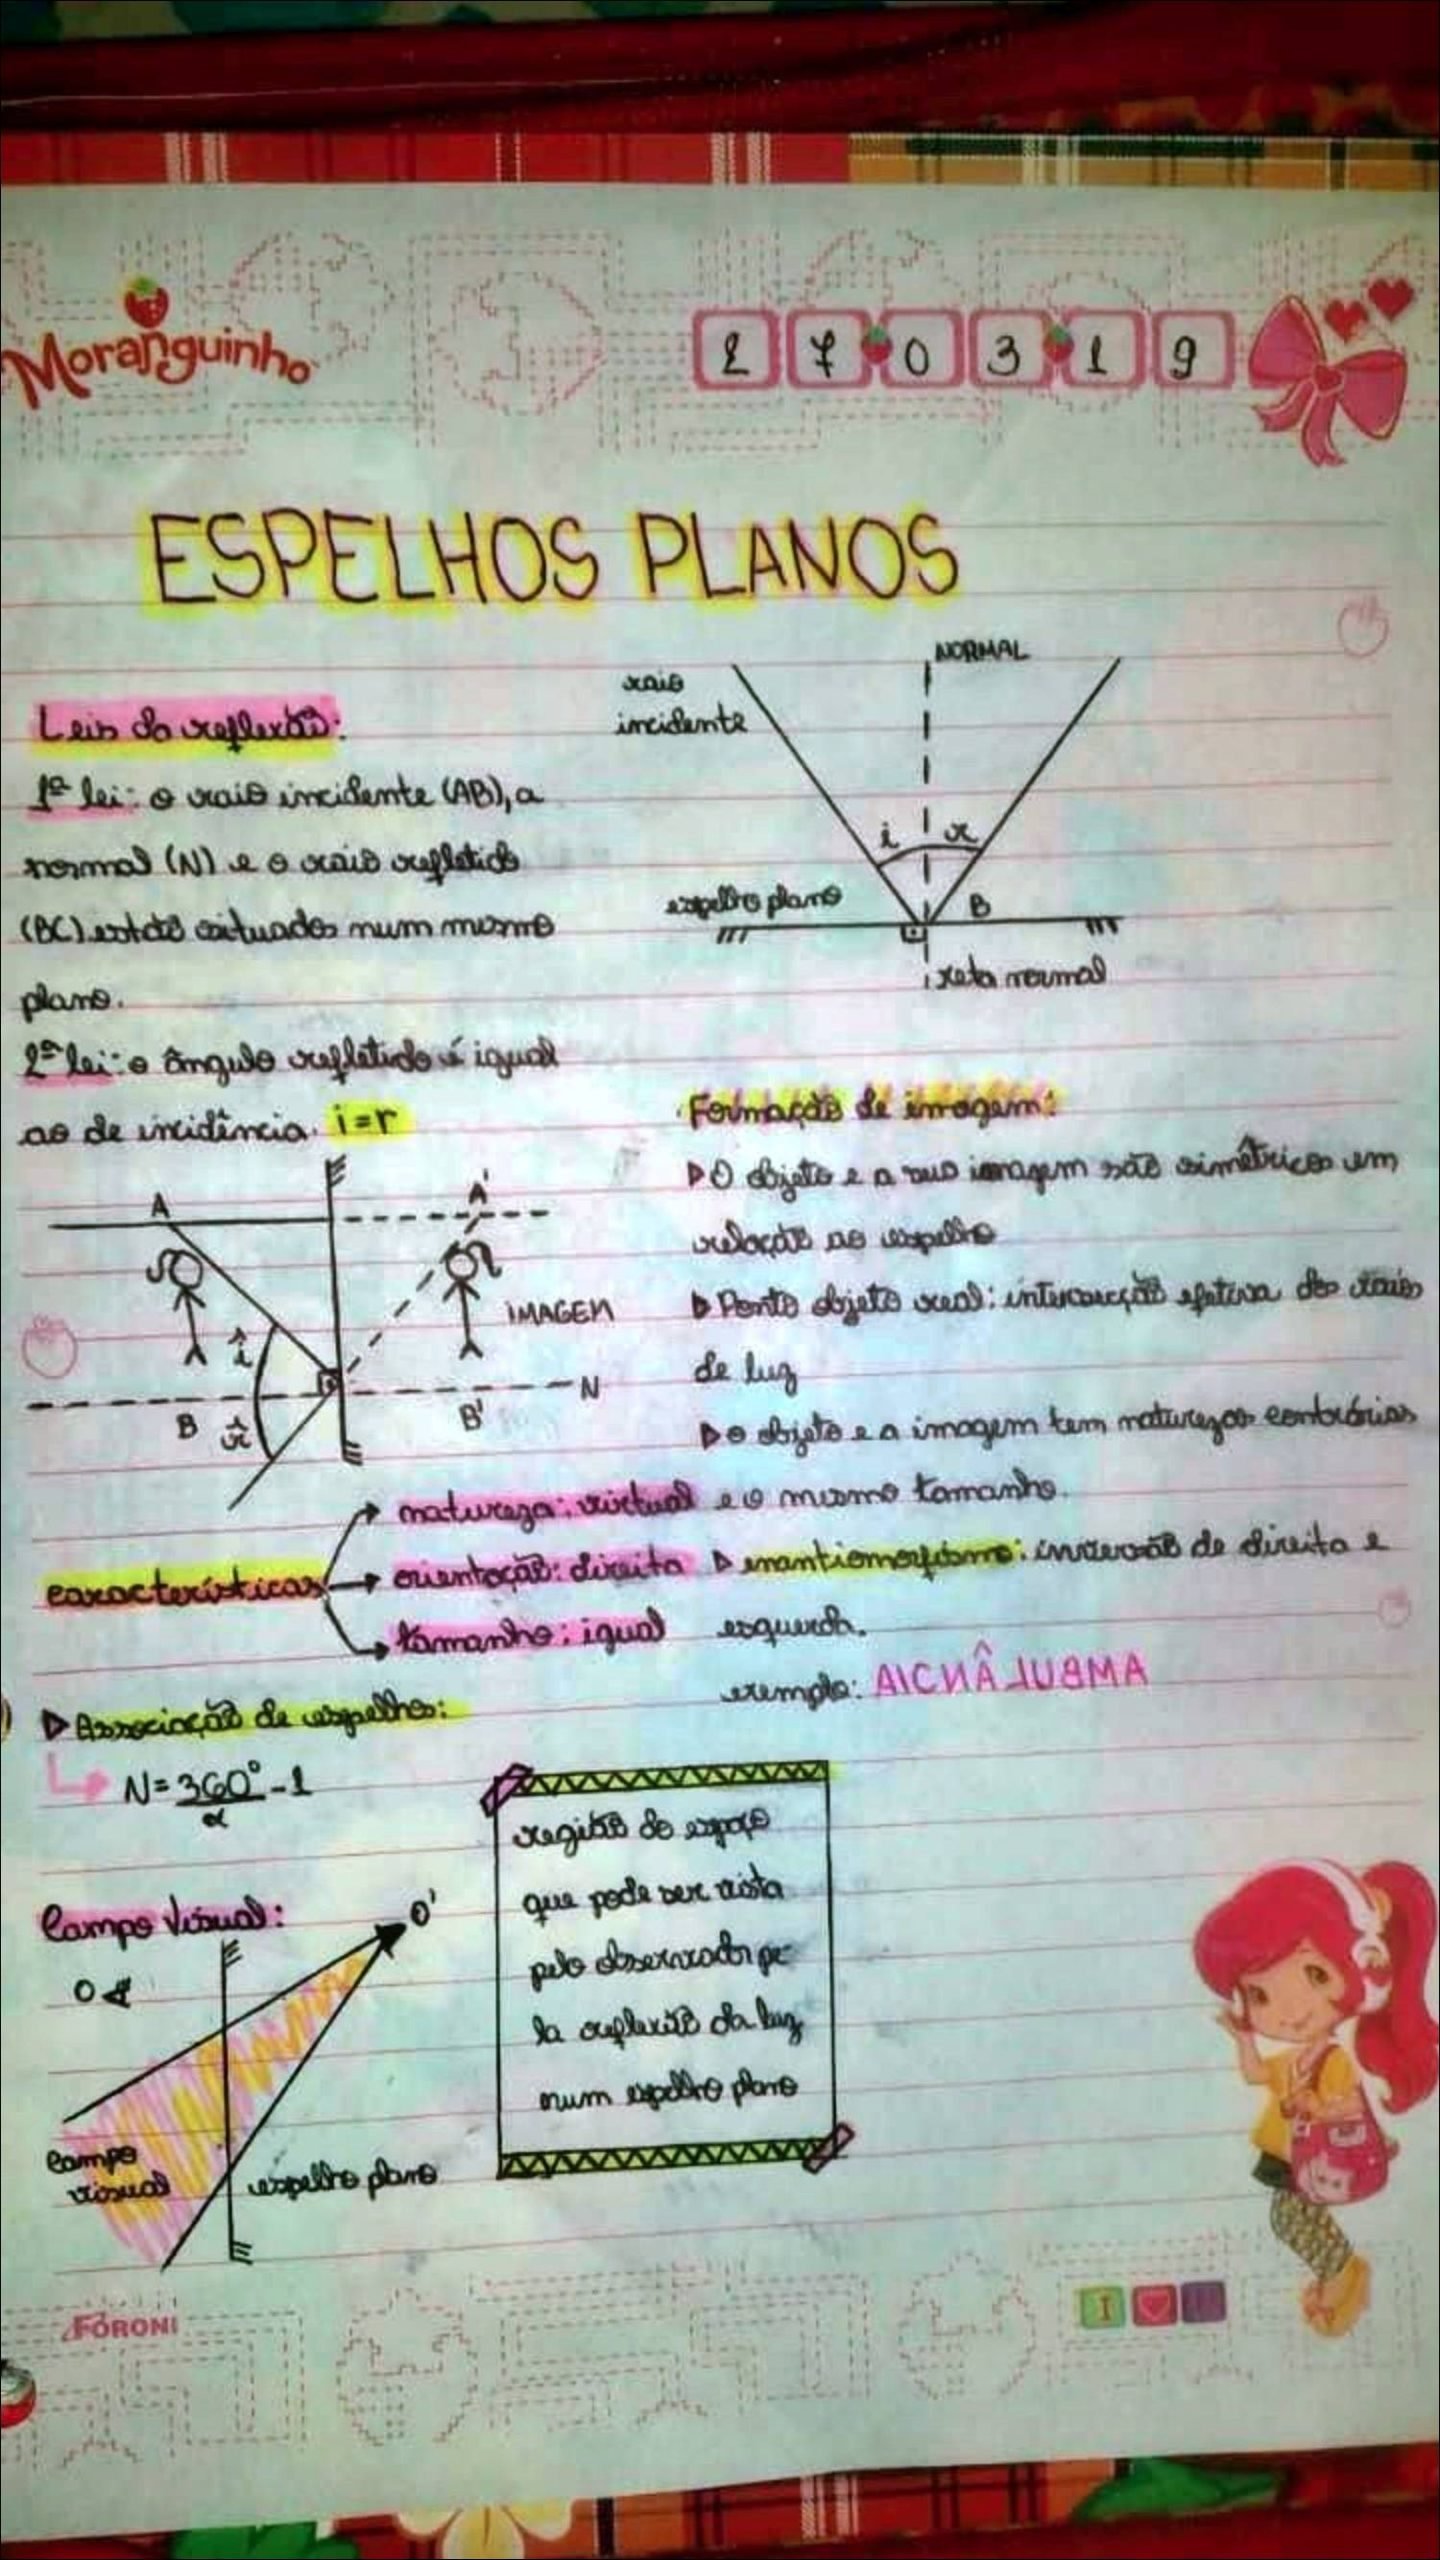 Moranguinho
2 7 0 3 1 9
ESPELHOS PLANOS
Leis da reflexão:
1ª lei: o raio incidente (AB), a
normal (N) e o raio refletido
(BC) estão situados num mesmo
plano.
2ª lei: o ângulo refletido é igual
ao de incidência. i=r
NORMAL
raio
incidente
i r
espelho plano
B
reta normal
A
A'
IMAGEM
î
N
B
r̂
B'
Formação de imagem:
▷ O objeto e a sua imagem são simêtricos em
relação ao espelho
▷ Ponto objeto real: intersecção efetiva dos raios
de luz
▷ o objeto e a imagem tem naturezas contrárias
e o mesmo tamanho.
▷ enantiomorfismo: inversão de direita e
esquerda.
exemplo: AMBULÂNCIA
características
natureza: virtual
orientação: direita
tamanho: igual
▷ Associação de espelhos:
N = 360° - 1
α
Campo Visual:
O
O'
campo
visual
espelho plano
região do espaço
que pode ser vista
pelo observador pe-
la reflexão da luz
num espelho plano
FORONI
I